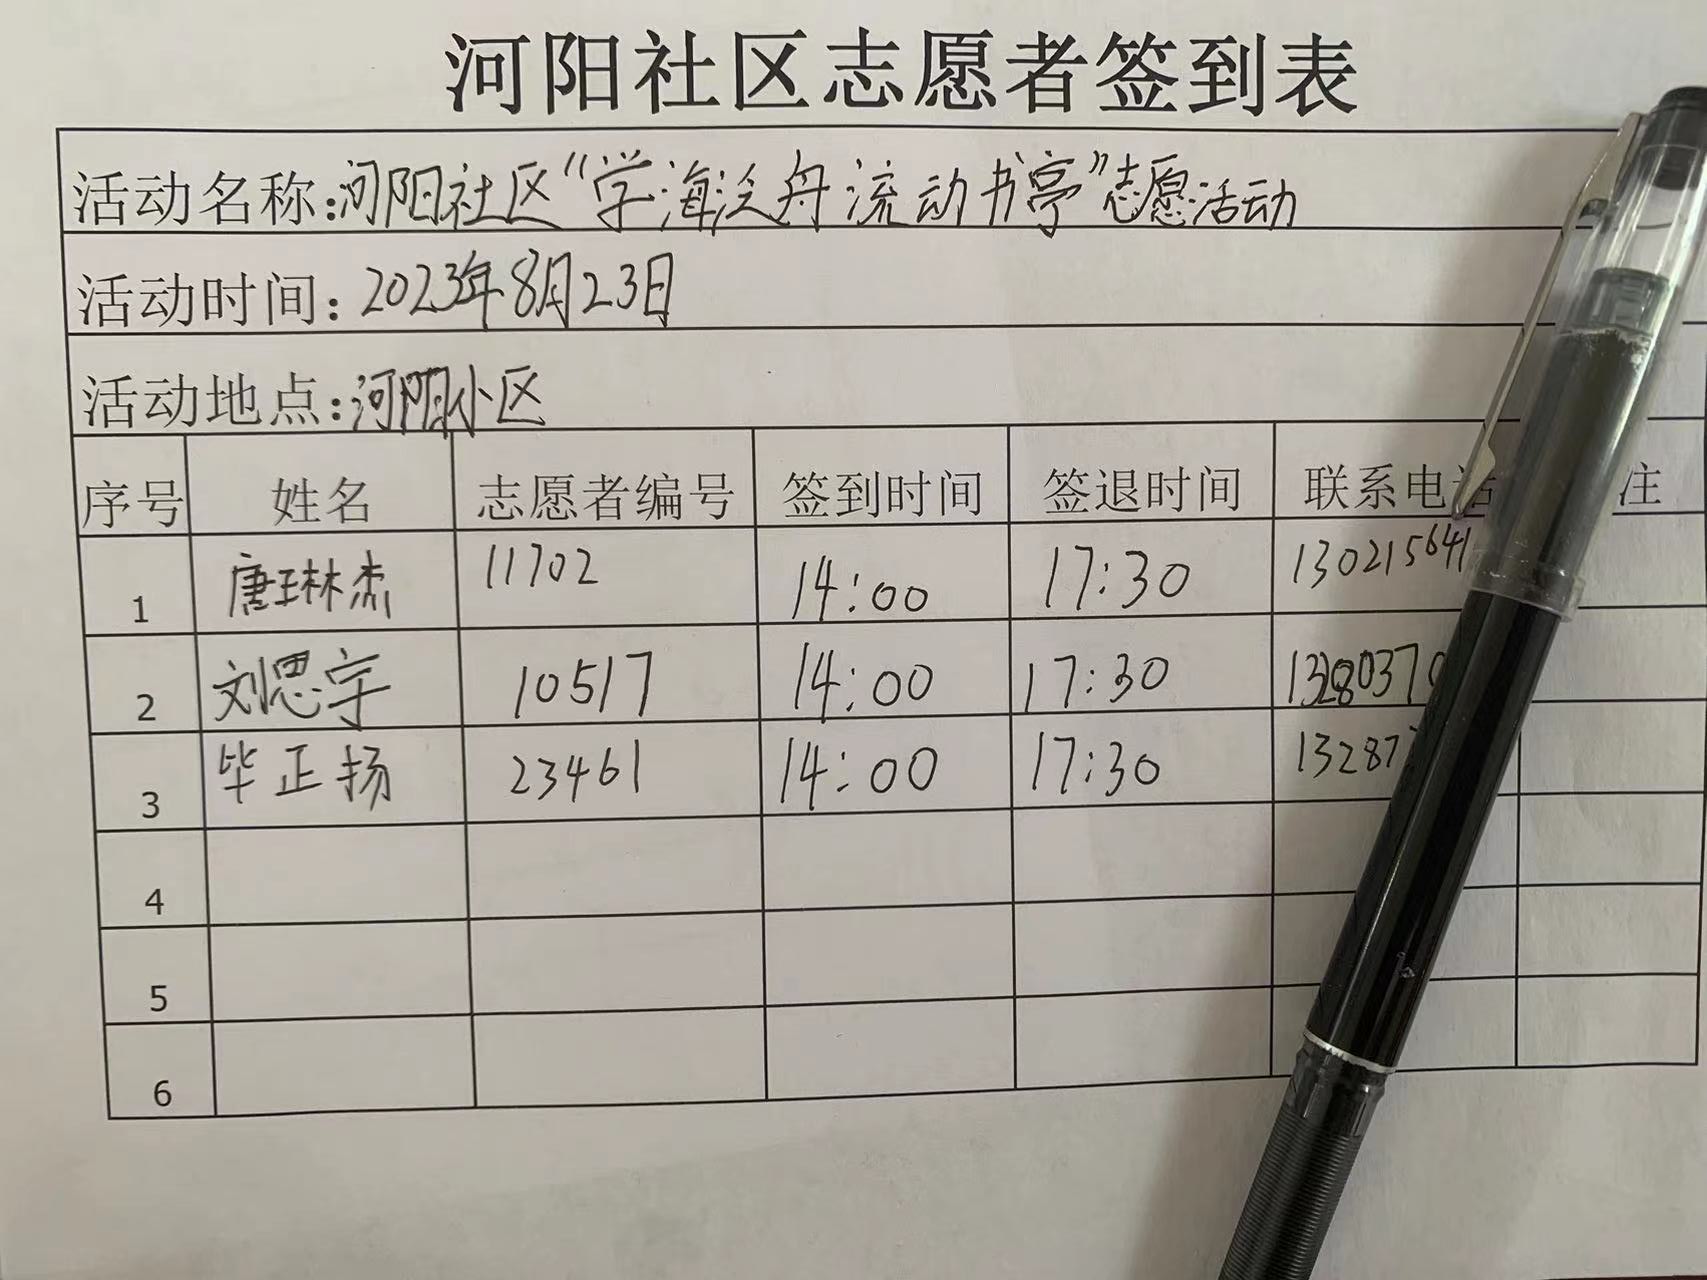 河阳社区志愿者签到表
活动名称:河阳社区“学海泛舟流动书亭”志愿活动
活动时间: 2023年8月23日
活动地点:河阳小区
序号 姓名 志愿者编号 签到时间 签退时间 联系电话 注
1 唐琳杰 11702 14:00 17:30 130215641
2 刘思宇 10517 14:00 17:30 1328037
3 毕正扬 23461 14:00 17:30 13287
4
5
6